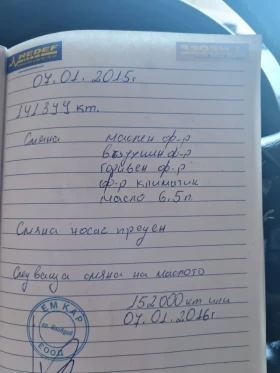 HEDEF
07.01.2015г
141399 км.
Смяна маслен ф-р
въздушен ф-р
горивен ф-р
ф-р климатик
масло 6.5л
Смяна носач преден
Следваща смяна на маслото
152000 км или
07.01.2016г
ЕМ КАР
ЕООД